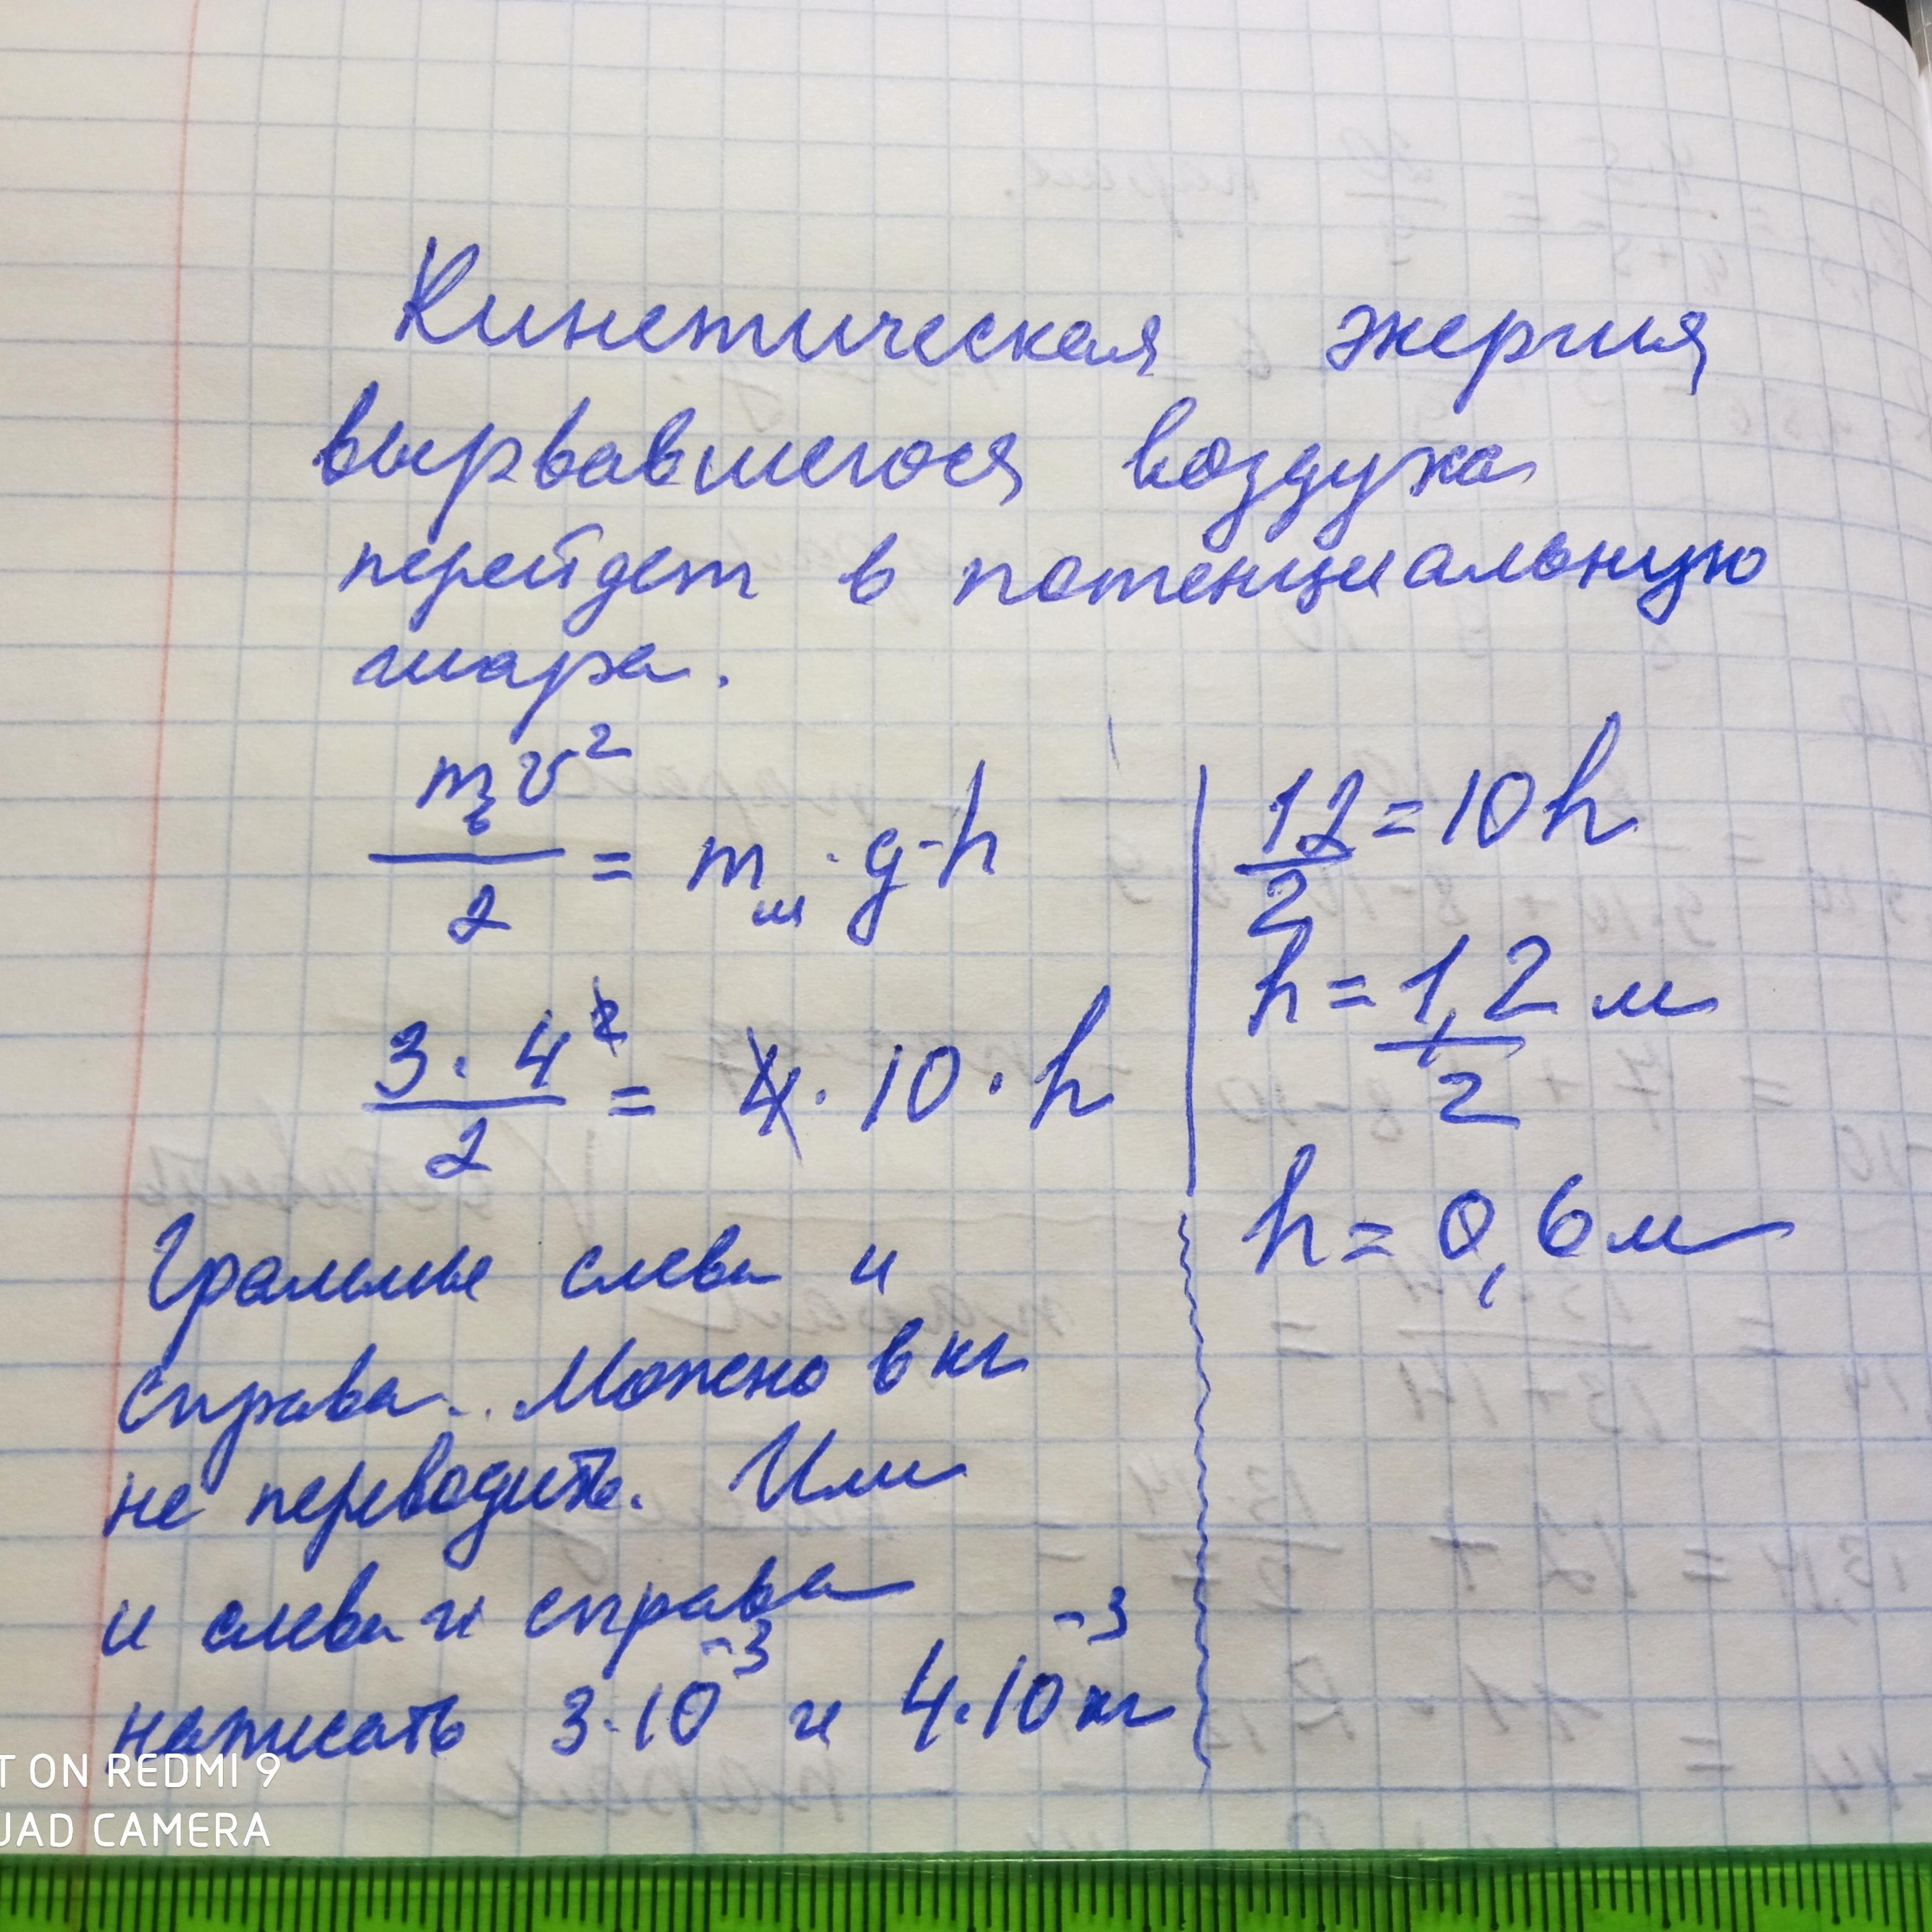 Кинетическая энергия
вырвавшегося воздуха
перейдет в потенциальную
шара.
m_в v² / 2 = m_ш · g · h
3 · 4² / 2 = 4 · 10 · h
Граммы слева и
справа. Можно в кг
не переводить. Или
и слева и справа
написать 3·10⁻³ и 4·10⁻³ кг
12 / 2 = 10 h
h = 1,2 / 2 м
h = 0,6 м
T ON REDMI 9
UAD CAMERA